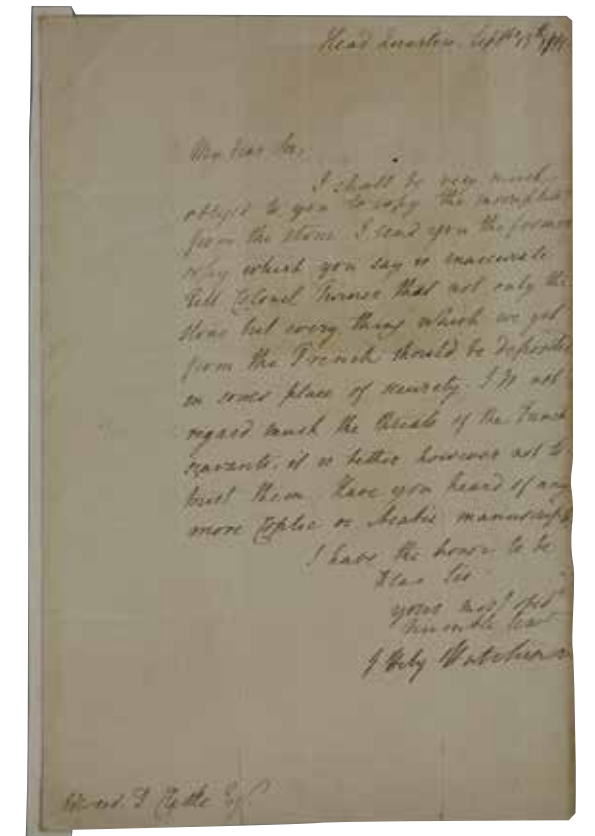 Head Quarters. Sept.
My dear Sir,
I shall be very much
obliged to you to copy the inscription
from the stone. I send you the former
copy which you say is inaccurate
Tell Colonel Turner that not only the
stone but every thing which we get
from the French should be deposited
in some place of security. I do not
regard much the threats of the French
scavants, it is better however not to
trust them. Have you heard of any
more Coptic or Arabic manuscripts
I have the honor to be
Dear Sir
your most obed
humble
J Hely Hutchinson
Edward. D Clarke Esq